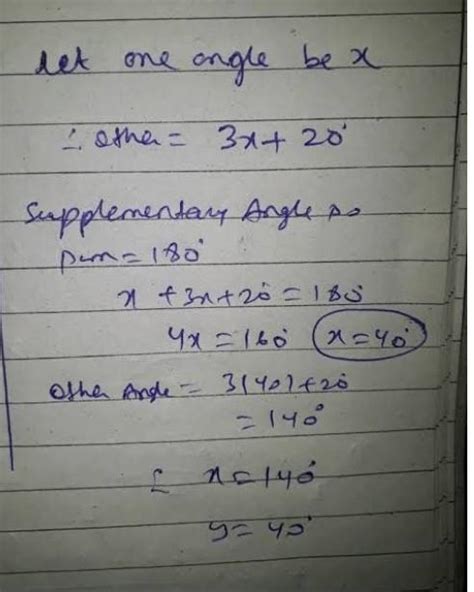 Let one angle be x
∴ other = 3x + 20°
Supplementary Angle
sum = 180°
x + 3x + 20° = 180°
4x = 160° x = 40°
Other Angle = 3(40) + 20°
= 140°
x = 140°
y = 40°